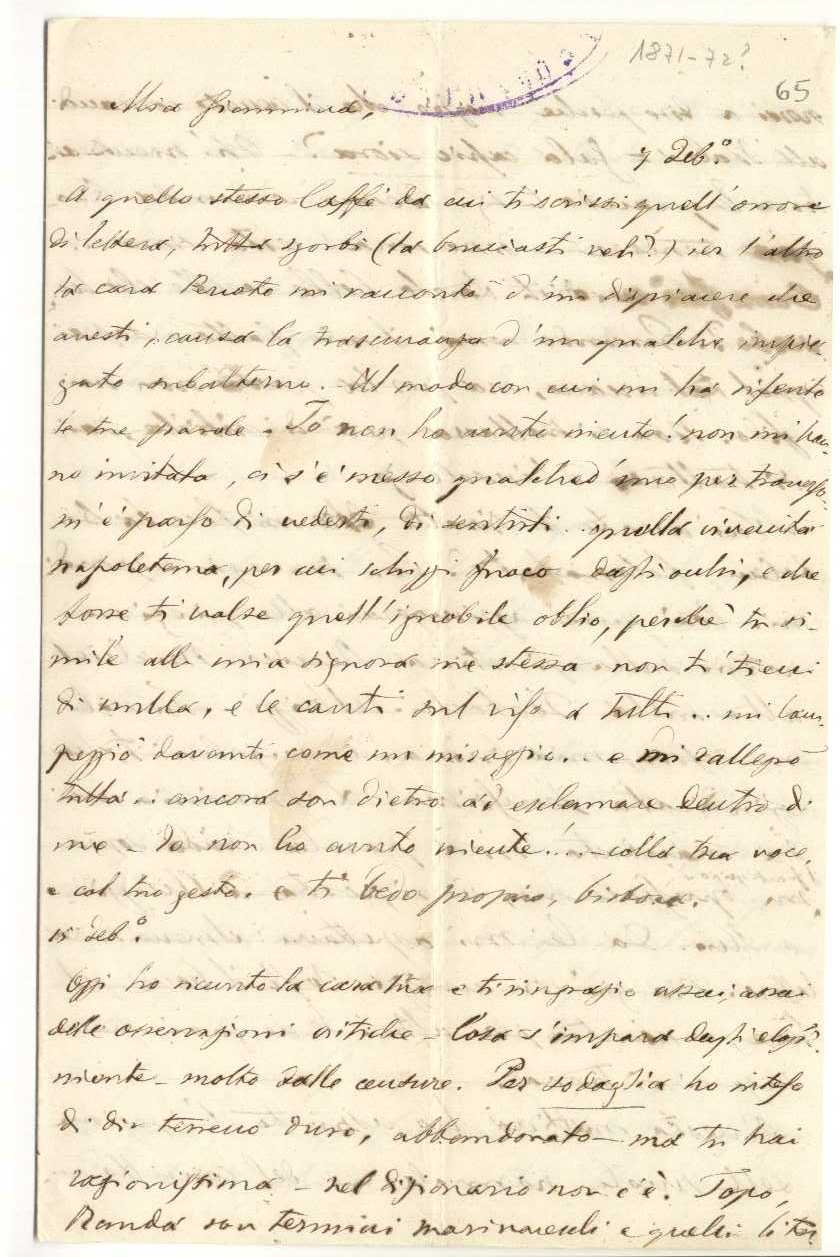 1871-72?
65
Mia Giannina,
7 Feb.º
A quello stesso Caffè da cui ti scrissi quell'orrore
di lettera, tutta sgorbi (la bruciasti veh?) ier l'altro
la cara mi raccontò d'un dispiacere che
avesti, causa la trascuranza d'un qualche impie-
gato subalterno. Al modo con cui mi ha riferito
le tue parole. Io non ho avuto niente! non mi han-
no invitata, ci s'è messo qualched'uno per traverso
m'è parso di vederti, di sentirti.. quella vivacità
napoletana, per cui schizzi fuoco dagli occhi, e che
forse ti valse quell'ignobile oblio, perchè tu si-
mile alla mia signora me stessa non ti tieni
di nulla, e le canti sul viso a tutti.. mi lam-
peggiò davanti come un miraggio.. e mi rallegrò
tutta.. ancora son dietro ad esclamare dentro di
me - Io non ho avuto niente!... - colla tua voce,
e col tuo gesto. e ti vedo proprio,
15 Feb.º
Oggi ho ricevuto la cara tua e ti ringrazio assai, assai
delle osservazioni critiche - Cosa s'impara dagli elogi?
niente - molto dalle censure. Per sodaglia ho inteso
di dir terreno duro, abbandonato - ma tu hai
ragionissima - nel dizionario non c'è. Topo,
Randa son termini marinareschi e quelli